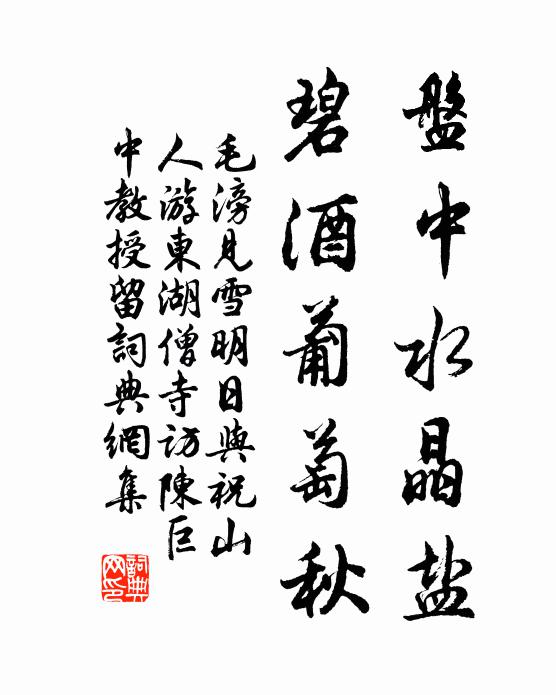 盤中水晶盐
碧酒葡萄秋
毛滂見雪明日與祝山
人游東湖僧寺訪陳巨
中教授留詞典網集
詞典網印